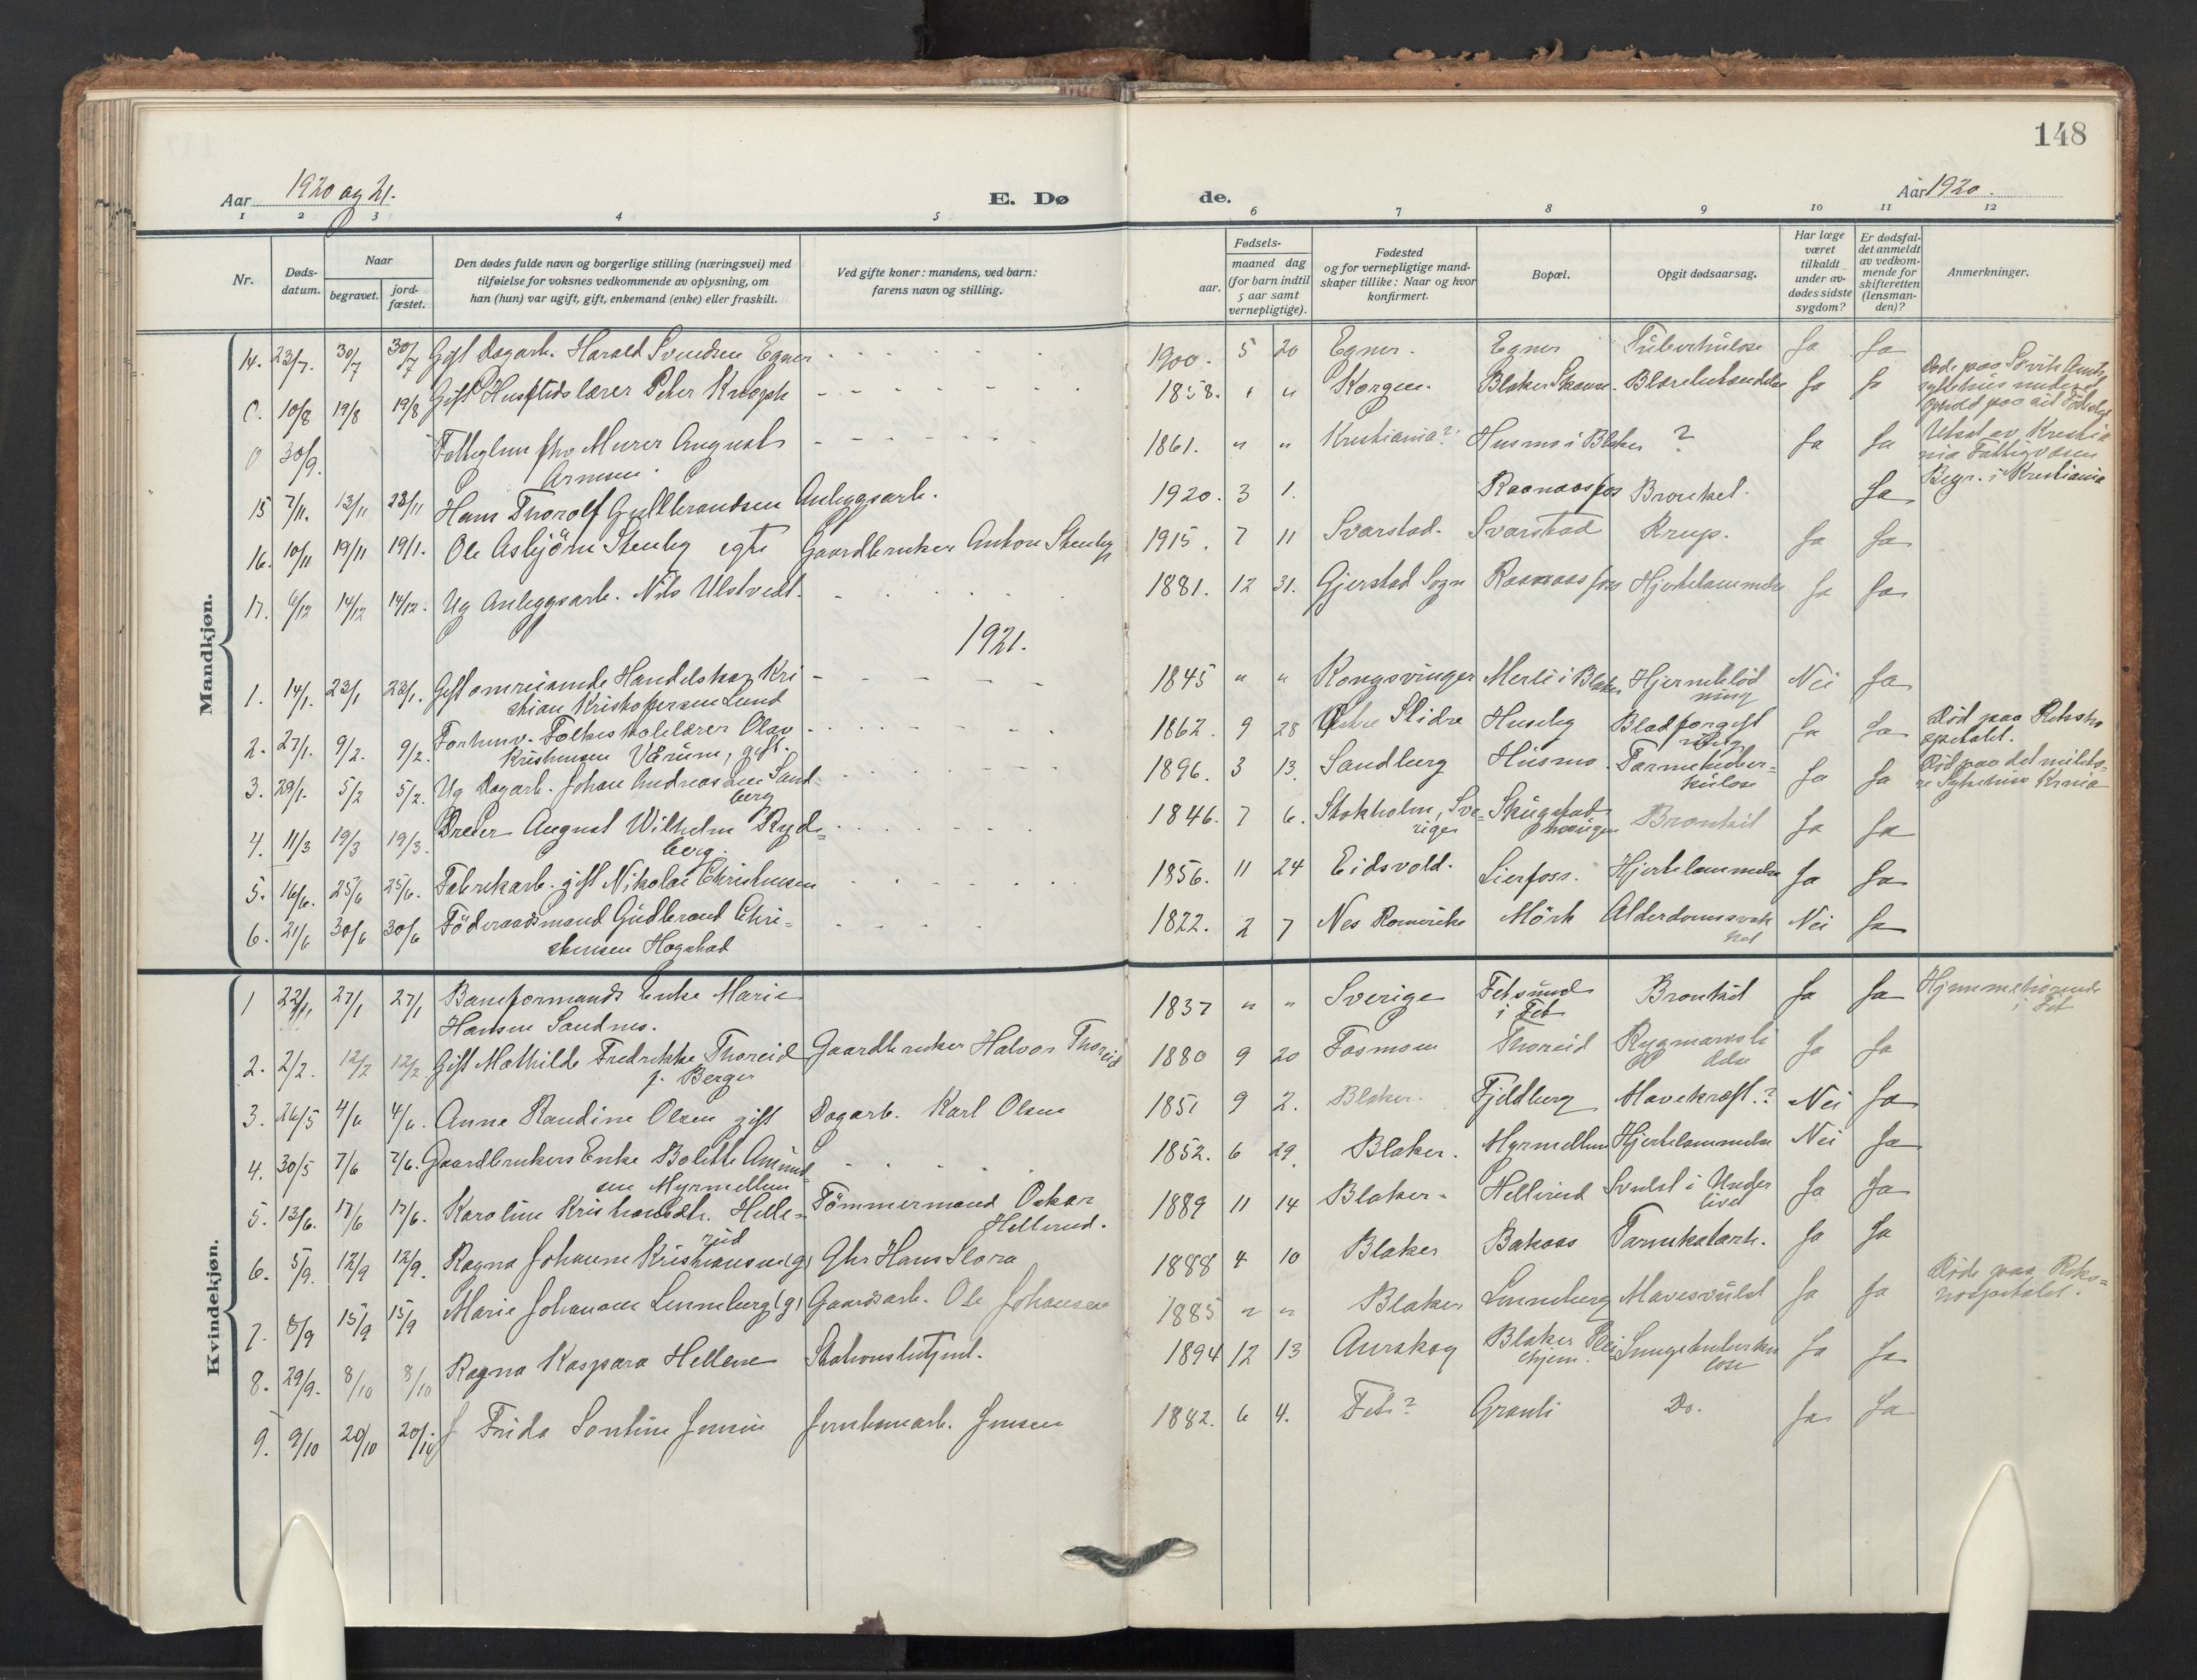 148
Aar 1920 og 21.
E. Dø
de.
Aar 1920.
1 2 3 4 5 6 7 8 9 10 11 12
Nr.
Døds-
datum.
Naar
begravet.
jord-
fæstet.
Den dødes fulde navn og borgerlige stilling (næringsvei) med
tilføielse for voksnes vedkommende av oplysning, om
han (hun) var ugift, gift, enkemand (enke) eller fraskilt.
Ved gifte koner: mandens, ved barn:
farens navn og stilling.
Fødsels-
aar.
maaned dag
(for barn indtil
5 aar samt
vernepligtige).
Fødested
og for vernepligtige mand-
skaper tillike: Naar og hvor
konfirmert.
Bopæl.
Opgit dødsaarsag.
Har læge
været
tilkaldt
under av-
dødes sidste
sygdom?
Er dødsfal-
det anmeldt
av vedkom-
mende for
skifteretten
(lensman-
den)?
Anmerkninger.
Mandkjøn.
14. 23/7. 30/7 30/7 Gift Dagarb. Harald Svendsen Egner 1900. 5 20 Egner. Egner Tuberkulose Ja Ja
0. 10/8 19/8 19/8 Gift Husflidslærer Peter 1858. " " Korgen. Blaker Skanse. Ja Ja
0 30/9. Fattiglem fhv Murer August
Arnesen 1861. " " Kristiania? Husmo i Blaker ? Ja Ja
Utsat av Kristia
nia Fattigvæsen
Begr. i Kristiania
15 7/11. 13/11 23/11 Hans Thorolf Gullbrandsen Anlegsarb. 1920. 3 1. Raanaasfos Bronket. Ja
16. 10/11 19/11 19/1. Ole Asbjörn Stenby egte Gaardbruker Anton Stenby 1915. 7 11 Svarstad. Svarstad Krup. Ja Ja
17. 6/12 14/12 14/12. Ug Anleggsarb. Nils Ulstvedt. 1881. 12 31. Gjerstad Sogn Raanaasfoss Hjertelammelse Ja Ja
1921.
1. 14/1. 23/1 23/1. Gift omreisende Handelskar Kri
stian Kristoffersen Lund 1845 " " Kongsvinger Merli i Blaker Hjerneblöd
ning Nei Ja
2. 27/1. 9/2. 9/2. Forhenv. Folkeskolelærer Olav
Kristensen Værum, gift. 1862. 9 28 Slidre Huseby Blodforgift
ning Ja Ja Död paa Rikshos
spitalet.
3. 29/1. 5/2 5/2. Ug Dagarb. Johan Andreas Sand-
berg 1896. 3 13. Sandberg Husmo. Tarmtuber-
kulose Ja Ja Död paa det militæ-
re Sykehus Krnia
4. 11/3 19/3 19/3. Dreier August Wilhelm Ryd-
berg. 1846. 7 6. Stokholm, Sve-
rige Skugstad Bronkit Ja Ja
5. 16/6. 25/6 25/6. Fabrikarb. gift Nikolai Christensen 1856. 11 24 Eidsvold. Lierfoss. Hjertelammelse Ja Ja
6. 21/6 30/6 30/6 Föderaadsmand Gudbrand Chri-
stensen Hogstad 1822. 2 7 Nes Romerike Mörk Alderdomssvak
het Nei Ja
Kvindekjøn.
1 22/1 27/1 27/1 Baneformands Enke Marie
Hansen Sandnes. 1837 " " Sverige Fetsund
i Fet Bronkit Ja Ja Hjemmehörende
i Fet
2. 2/2. 12/2 12/2 Gift Mathilde Fredrikke Thoreid
f. Berger Gaardbruker Halvor Thoreid 1880 9 20 Fosmoen Thoreid Rygmarvsli
delse Ja Ja
3. 26/5 4/6 4/6. Anne Randine Olsen gift Dagarb. Karl Olsen 1851 9 2. Blaker. Fjeldberg Mavekræft.? Nei Ja
4. 30/5 7/6 7/6. Gaardbrukers Enke Bolette Amund-
sen Myrmellem 1852. 6 29. Blaker. Myrmellem Hjertelammelse Nei Ja
5. 13/6. 17/6 17/6. Karoline Kristiansdtr. Helle-
rud Tömmermand Oskar
Hellerud. 1889 11 14 Blaker. Hellerud Svulst i Under
livet Ja Ja
6. 5/9. 12/9 12/9. Ragna Johanne Kristiansen (g) Gbr Hans Slora 1888 4 10 Blaker Bakaas Tarmkatarh. Ja Ja
7. 8/9 15/9 15/9 Marie Johansen Linneberg (g) Gaardsarb. Ole Johansen 1885 " " Blaker Linneberg Mavesvulst Ja Ja Döde paa Riks-
hospitalet.
8. 29/9. 8/10 8/10 Ragna Kaspara Hellene Stationsbetjent. 1894 12 13 Aurskog Blaker Plei
ehjem. Lungetuberku
lose Ja Ja
9. 9/10 20/10 20/10 Frida Sontine Jensen Jernbanearb. Jensen 1882. 6 4. Fet? Granli Do. Ja Ja